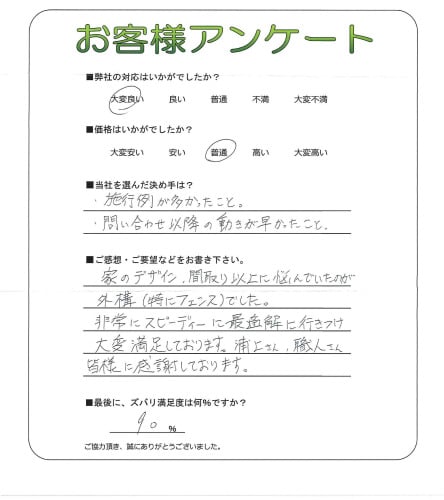 お客様アンケート
■弊社の対応はいかがでしたか？
大変良い 良い 普通 不満 大変不満
■価格はいかがでしたか？
大変安い 安い 普通 高い 大変高い
■当社を選んだ決め手は？
・施行例が多かったこと。
・問い合わせ以降の動きが早かったこと.
■ご感想・ご要望などをお書き下さい。
家のデザイン、間取り以上に悩んでいたのが
外構(特にフェンス)でした。
非常にスピーディーに最適解に行きつけ
大変満足しております。浦上さん、職人さん
皆様に感謝しております。
■最後に、ズバリ満足度は何%ですか？
90 %
ご協力頂き、誠にありがとうございました。